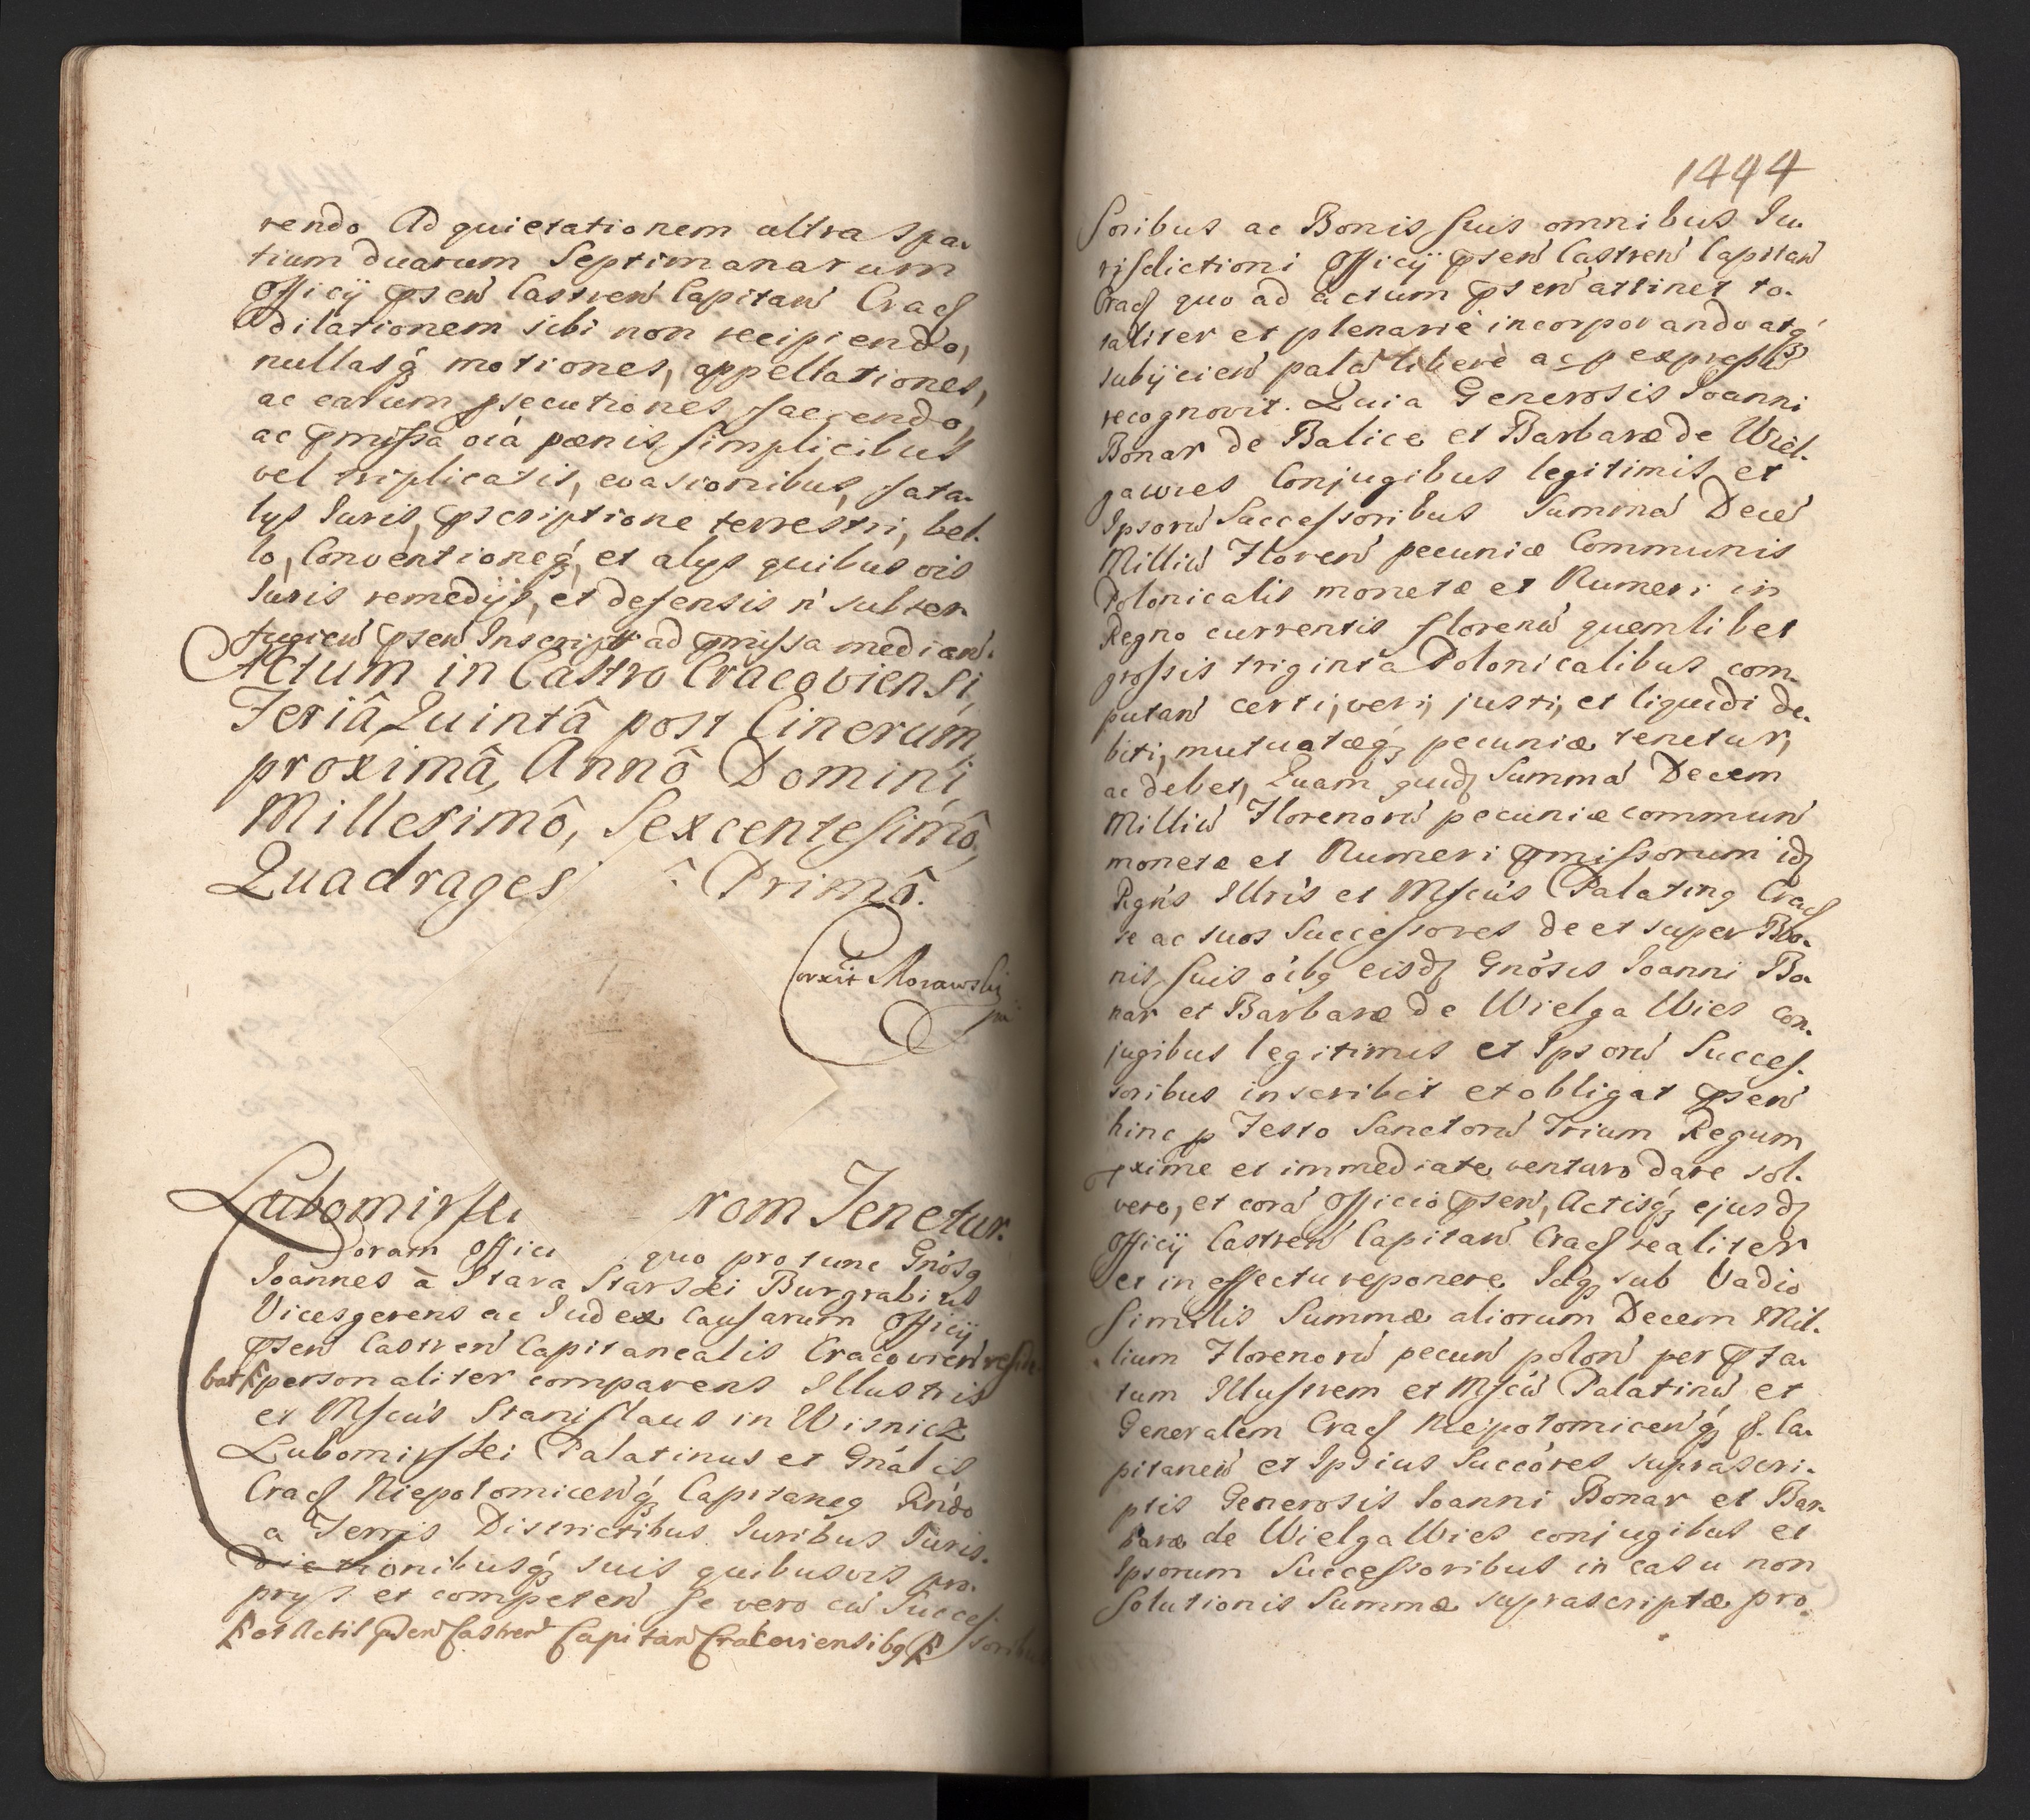 rendo Ad quietationem ultra spa-
tium duarum Septimanarum
Officij pñsen̄ Castren̄ Capitan̄ Crac̄
dilationem sibi non recipiendo,
nullasq́ motiones, appellationes,
ac earum psecutiones faciendo,
ac pmissa oía pænis simplicibus
vel triplicatis, evasionibus, fata-
lijs Iuris, pscriptione terrestri, bel-
lo, Conventioneq́, et alijs quibusvis
Iuris remedijs, et defensis ń subter-
fugien̄ psen̄ Inscript ad pmissa median̄.
Actum in Castro Cracoviensi,
Feriâ Quintâ post Cinerum
proximâ, Annô Domini
Millesimô, Sexcentesimô,
Quadrages ô Primô.
Correxit Morawski
Lubomirski rom Tenetur.
Coram offici quo pro tunc Gnósq
Ioannes â Stara Starski Burgrabius
Vicesgerens ac Iudex Causarum Officij
psen̄ Castren̄ Capitanealis Cracovien̄ reside-
bat personaliter comparens Illustris
et Mſcús Stanislaus in Wisnicz
Lubomirski Palatinus et Gnális
Crac̄ Niepolomicen̄q́ Capitaneq Rńdo
a Terris Districtibus Iuribus Iuris-
dictionibusq́ suis quibusvis pro-
prijs et competen̄ se vero cū Succes-
soribus
et Actis psen̄ Castren̄ Capitan̄ Cracoviensibq
1444
soribus ac Bonis suis omnibus Iu-
risdictioni Officij psen̄ Castren̄ Capitan̄
Crac̄ quo ad actum psen̄ attinet to-
taliter et plenariè incorporando atq́
subijcien̄ palā liberè ac p expressū
recognovit. Quia Generosis Ioanni
Bonar de Balice et Barbaræ de Wiel-
gawies Conjugibus legitimis et
Ipsorū Successoribus Summā Decē
Milliū Floren̄ pecuniæ Communis
Polonicalis monetæ et Numeri in
Regno currentis florenū quemlibet
grossis triginta Polonicalibus com-
putan̄ certi, veri, justi, et liquidi de-
biti, mutuatæq́ pecuniæ tenetur,
ac debet, Quam quid̄ Summā Decem
Milliū Florenorū pecuniæ commun̄
monetæ et Numeri pmissorum id̄
Rgńs Illris et Mſcús Palatinq Crac̄
se ac suos Successores de et super Bo-
nis suis óibq eisd̄ Gnósis Ioanni Bo-
nar et Barbaræ de Wielga Wies con-
jugibus legitimis et Ipsorū Succes-
soribus inscribit et obligat psen̄
hinc p Festo Sanctorū Trium Regum
pxime et immediate venturo dare sol-
vere, et corā Officio psen̄, Actisq́ ejusd̄
Officij Castren̄ Capitan̄ Crac̄ realiter
et in effectu reponere, Idq́ sub Vadio
Similis Summæ aliorum Decem Mil-
lium Florenorū pecun̄ polon̄ per pfa-
tum Illustrem et Mſcū Palatinū et
Generalem Crac̄ Niepolomicen̄q́ Ca-
pitaneū et Ipsius Succóres suprascri-
ptis Generosis Ioanni Bonar et Bar-
baræ de Wielga Wies conjugibus et
Ipsorum Successoribus in casu non
Solutionis Summæ suprascriptæ pro